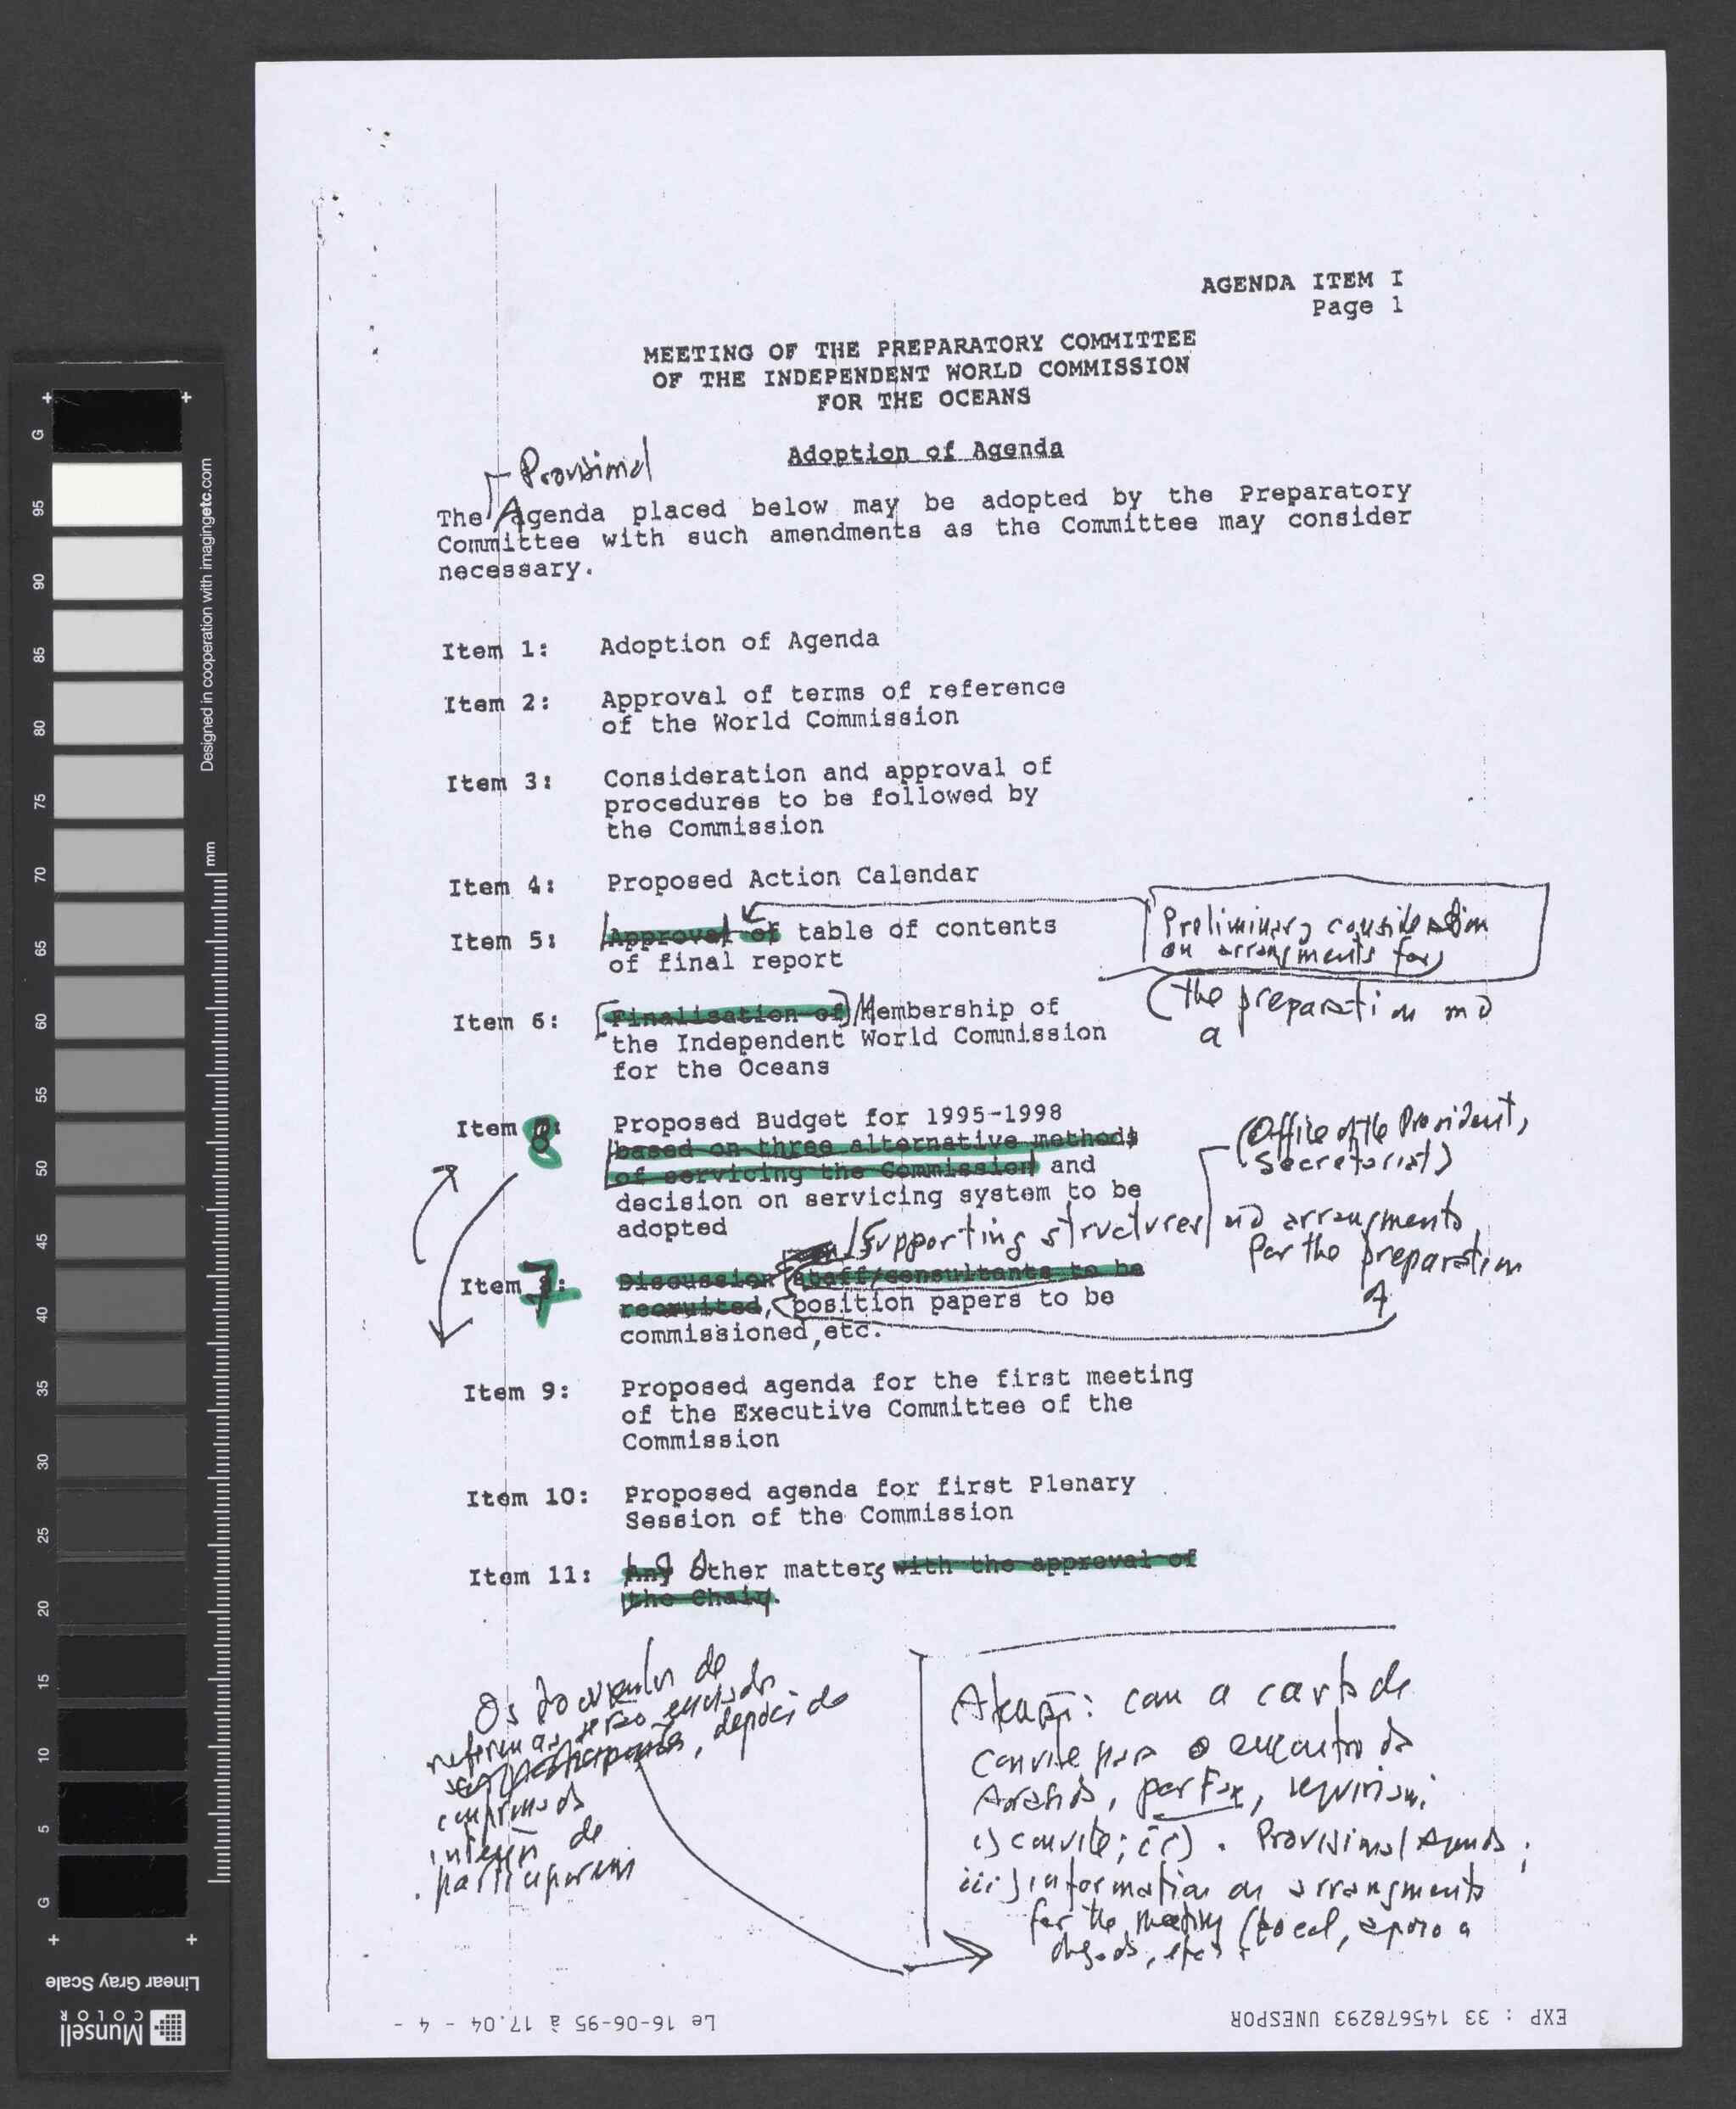 AGENDA ITEM I
Page 1
MEETING OF THE PREPARATORY COMMITTEE
OF THE INDEPENDENT WORLD COMMISSION
FOR THE OCEANS
Adoption of Agenda
Provisional
The Agenda placed below may be adopted by the Preparatory
Committee with such amendments as the Committee may consider
necessary.
Item 1: Adoption of Agenda
Item 2: Approval of terms of reference
of the World Commission
Item 3: Consideration and approval of
procedures to be followed by
the Commission
Item 4: Proposed Action Calendar
Item 5: Approval of table of contents
of final report
Preliminary consideration
on arrangments for
(the preparation and
a
Item 6: Finalisation of Membership of
the Independent World Commission
for the Oceans
Item 8: Proposed Budget for 1995-1998
based on three alternative methods
of servicing the Commission and
decision on servicing system to be
adopted
(Office of the President,
Secretariat)
Supporting structures and arrangments
for the preparation
Item 7: Discussion staff/consultants to be
recruited, position papers to be
commissioned, etc.
Item 9: Proposed agenda for the first meeting
of the Executive Committee of the
Commission
Item 10: Proposed agenda for first Plenary
Session of the Commission
Item 11: Any Other matters with the approval of
the Chair.
Os de
serão depois de
de
participarem
Atenção: com a carta de
convite para o encontro de
por Fax,
i) convite; ii). Provisional Agenda;
iii) information on arrangments
for the meeting (local, apoio a
etc.
Le 16-06-95 à 17.04 - 4 -
EXP : 33 145678293 UNESPOR
G
95
90
85
80
75
70
65
60
55
50
45
40
35
30
25
20
15
10
5
G
Designed in cooperation with imagingetc.com
mm
Linear Gray Scale
Munsell
COLOR